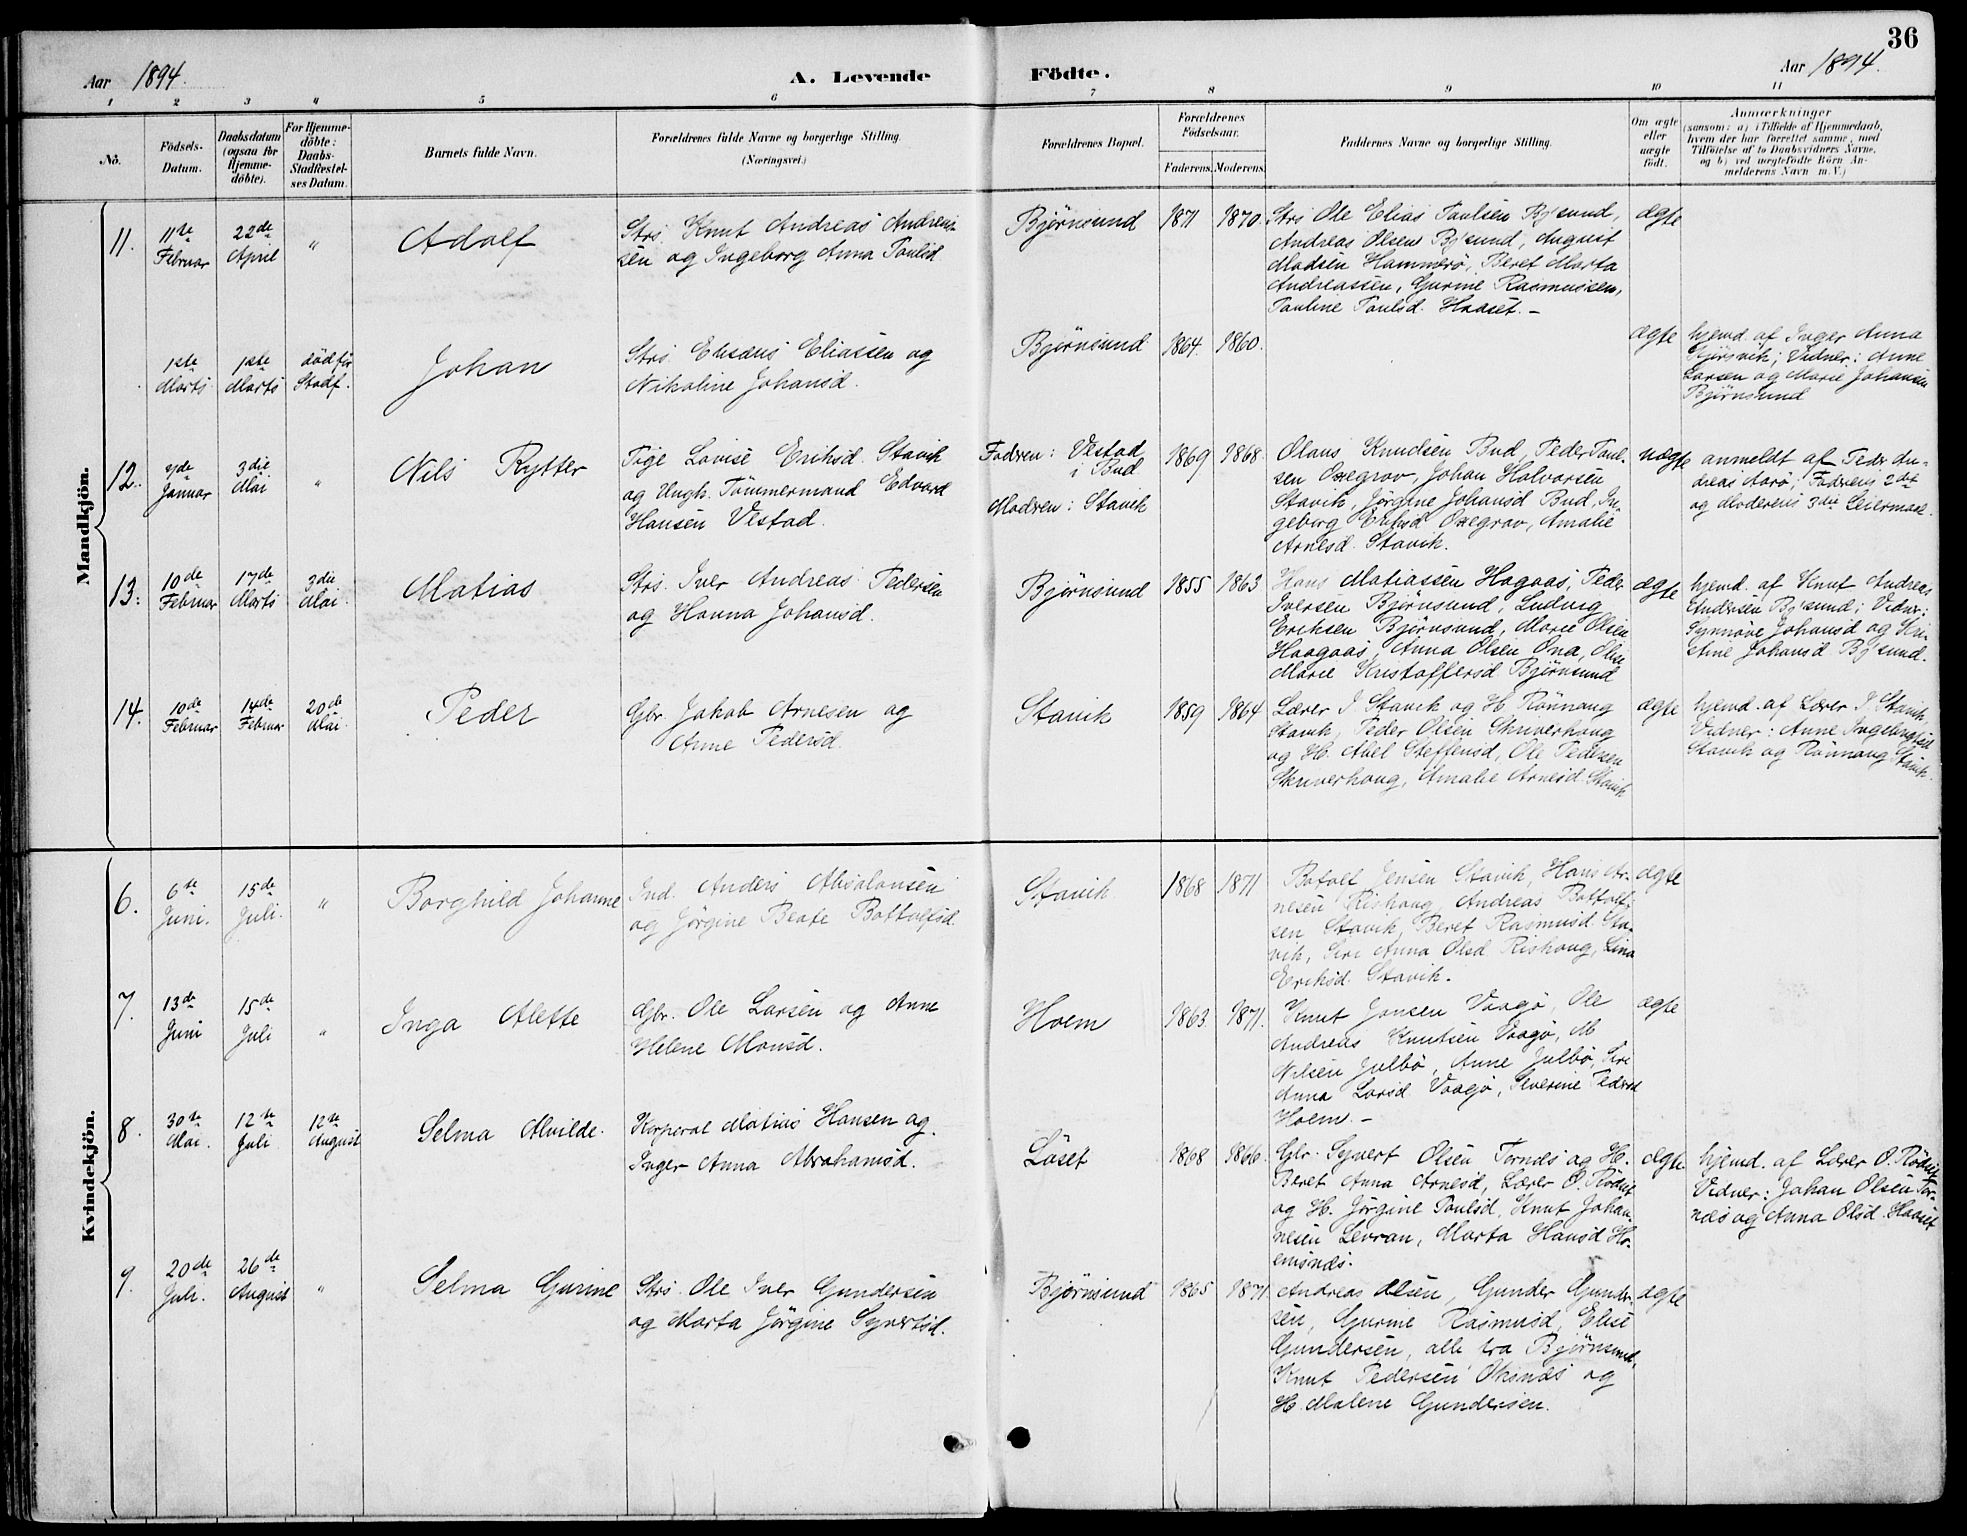 36
Aar 1894.
A. Levende
Födte.
Aar 1894.
1 2 3 4 5 6 7 8 9 10 11
No.
Födsels-
Datum.
Daabsdatum
(ogsaa for
Hjemme-
döbte).
For Hjemme-
döbte:
Daabs-
Stadfæstel-
ses Datum.
Barnets fulde Navn.
Forældrenes fulde Navne og borgerlige Stilling.
(Næringsvei.)
Forældrenes Bopæl.
Forældrenes
Födselsaar.
Faderens.
Moderens.
Faddernes Navne og borgerlige Stilling.
Om ægte
eller
uægte
födt.
Anmærkninger
(saasom: a) i Tilfælde af Hjemmedaab,
hvem der har forrettet samme, med
Tilföielse af to Daabsvidners Navne,
og b) ved uægtefödte Börn An-
melderens Navn m. V.)
Mandkjön.
11.
11te
Februar
22de
April
"
Adolf
Strs. Knut Andreas Andreas-
sen og Ingeborg Anna Paulsd.
Bjørnsund
1871
1870.
Strs Ole Elias Paulsen Bj'sund,
Andreas Olsen Bj'sund, August
Madsen Hammerö, Beret Marta
Andreassen, Gurine Rasmussen,
Pauline Paulsd. Haaset. –
ægte
1ste
Marts
1ste
Marts
död før
Stadf.
Johan
Strs. Elisæus Eliassen og
Nikoline Johansd.
Bjørnsund
1864.
1860.
ægte
hjemd. af Inger Anna
Vidner: Anne
Larsen og Marie Johansen
Björnsund
12.
Januar
3die
Mai
"
Nils Rytter
Pige Lovise Eriksd. Stavik
og Ungk. Tömmermand Edvard
Hansen Vestad.
Fadren: Vestad
i Bud
Modren: Stavik
1869
1868.
Olaus Knudsen Bud, Peder Paul-
sen Oxegrov, Johan Halvorsen
Stavik, Jørgine Johansd Bud, In-
geborg Eriksd Oxegrov, Amalie
Arnesd. Stavik.
uægte
anmeldt af Peder An-
dreas Aarö; Fadrens 2det
og Moderens 3die Leiermaal.
13.
10de
Februar
17de
Marts
3die
Mai.
Matias
Strs. Iver Andreas Pedersen
og Hanna Johansd.
Bjørnsund
1855
1863
Hans Matiassen Hagaas, Peder
Iversen Bjørnsund, Ludvig
Eriksen Bjørnsund, Marie Olsen
Haagaas, Anna Olsen Ona, Oline
Marie Kristoffersd Bjørnsund
ægte
hjemd. af Knut Andreas
Andersen Bj'sund; Vidner:
Synnöve Johansd og Kri-
stine Johansd Bj'sund.
14.
10de
Februar
14de
Februar
20de
Mai.
Peder
Gbr. Jakob Arnesen og
Anne Pedersd.
Stavik
1859
1864
Lærer I. Stavik og H. Rönnaug
Stavik, Peder Olsen Skriverhaug
og H. Abel Steffensd, Ole Pedersen
Skriverhaug, Amalie Arnesd. Stavik
ægte
hjemd. af Lærer I. Stavik,
Vidner: Anne Ingebrigtsd
Stavik og Rönnaug Stavik.
Kvindekjön.
6.
6te
Juni.
15de
Juli.
"
Borghild Johanne
Ind. Anders Absalonsen
og Jørgine Beate Bottolfsd.
Stavik
1868
1871
Botolf Jensen Stavik, Hans Ar-
nesen Rishaug, Andreas Bottolf-
sen Stavik, Beret Rasmusd. Sta-
vik, Siri Anna Olsd Rishaug, Lina
Eriksd. Stavik.
ægte
7.
13de
Juni
15de
Juli
"
Inga Alette
Gbr. Ole Larsen og Anne
Helene Monsd.
Holm
1863
1871.
Knut Jonsen Vaagö, Ole
Andreas Knutsen Vaagö, M.
Nilsen Julbö, Anne Julbö, Siri
Anna Larsd Vaagö, Severine Pedersd
Holm. –
ægte
8.
30te
Mai.
12te
Juli
12te
August
Selma Alvilde.
Korporal Matias Hansen og
Inger Anna Abrahamsd.
Löset
1868
1866.
Gbr. Syvert Olsen Tornæs og H.
Beret Anna Arnesd, Lærer O. Rödset
og H. Jørgine Paulsd, Knut Johan-
nesen Levran, Marta Hansd Ho-
emsnæs.
ægte
hjemd. af Lærer O. Rödset
Vidner: Johan Olsen Tor-
næs og Anna Olsd. Haaset
9.
20de
Juli.
26de
August
"
Selma Gurine
Strs. Ole Iver Gundersen
og Marta Jørgine Syvertsd.
Bjørnsund
1865
1871
Andreas Olsen, Gunder Gunder-
sen, Gurine Rasmusd, Elise
Gundersen, alle fra Bjørnsund,
Knut Pedersen og
H. Malene Gundersen.
ægte